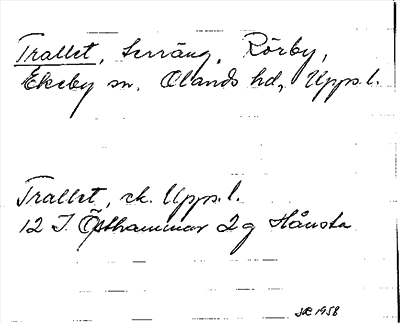 Trallet, Terräng, Rörby,
Ekeby sn. Olands hd, Upps. l.
Trallet, ek. Upps. l.
12 I. Östhammar 2g Hånsta
1958